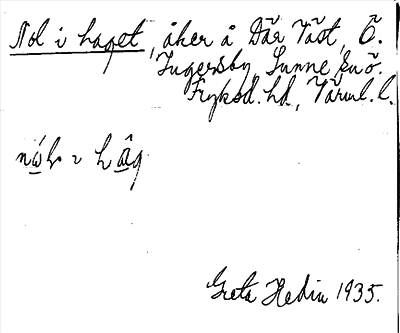 Nol i haget, åker å Där Väst, Ö.
Ingersby Sunne sn
Fryksd. hd, Värml. l.
Greta Hedin 1935.